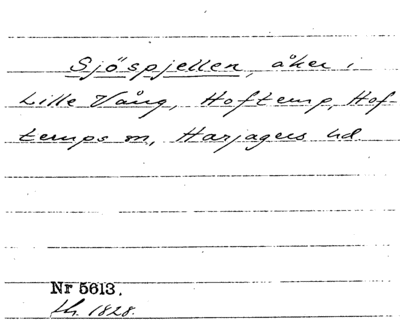 Sjöspjellen, åker i
Lille Vång, Hoftemp, Hof-
temps sn, Harjagers hd.
Nr 5613.
1828.